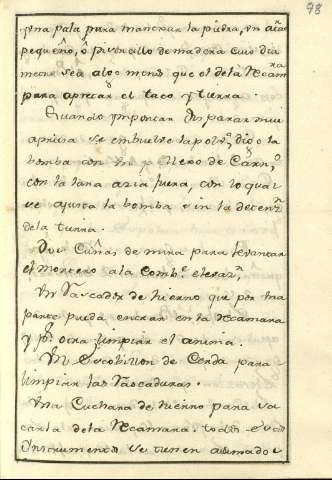 98
una pala para manexar la pñra, un
pequeño, o pivoncillo de madera cuio dia
metro sea algo menos que el de la Recam.ra
para apretar el taco y tierra.
Quando importan disparar mui
aprisa se embuelve la polv.a, digo la
bomba con un pellexo de Carn.o
con la lana azia fuera, con lo qual
se ajusta la bomba sin la detenz.n
de la tierra.
Dos Cuñas de mira para levantar
el mortero a la comb.te elevaz.n
Un Rascador de hierro que por una
parte pueda entrar en la Recamara
y p.r otra limpiar el anima.
Un Escobillon de Cerda para
limpiar las Rascaduras.
Una Cuchara de hierro para sa
carla de la Recamara. todos estos
Instrumentos se tienen arrimados